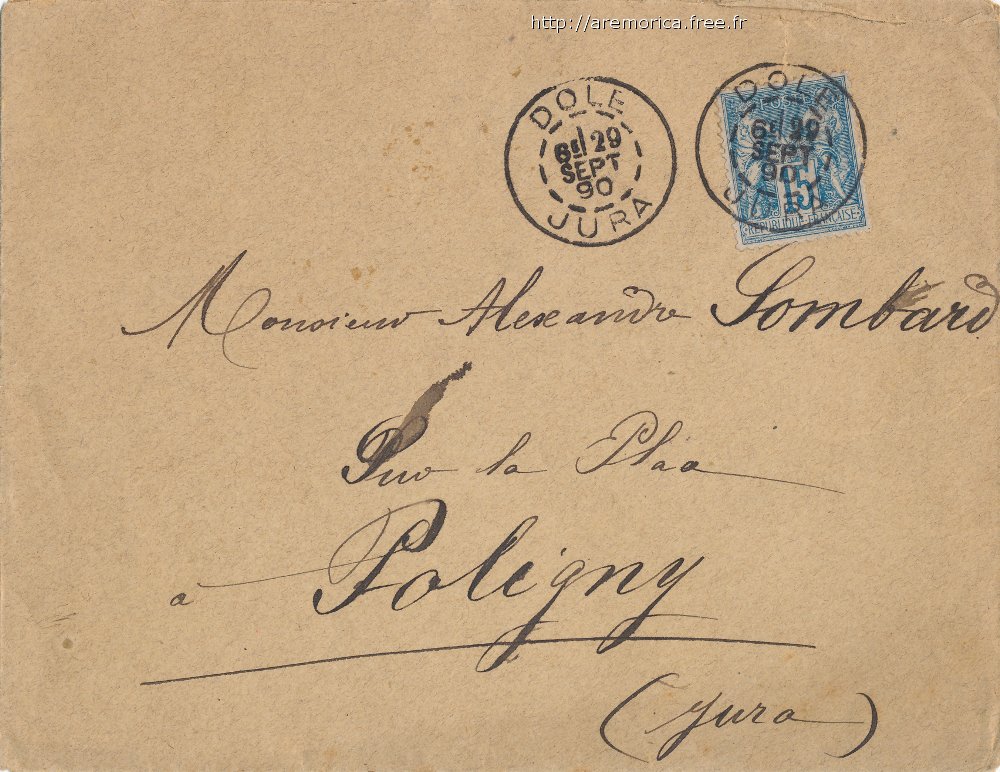 http://aremorica.free.fr
DOLE
6E 29
SEPT
90
JURA
DOLE
6E 29
SEPT
90
15
REPUBLIQUE FRANÇAISE
Monsieur Alexandre Lombard
Sur la Place
à Poligny
(Jura)